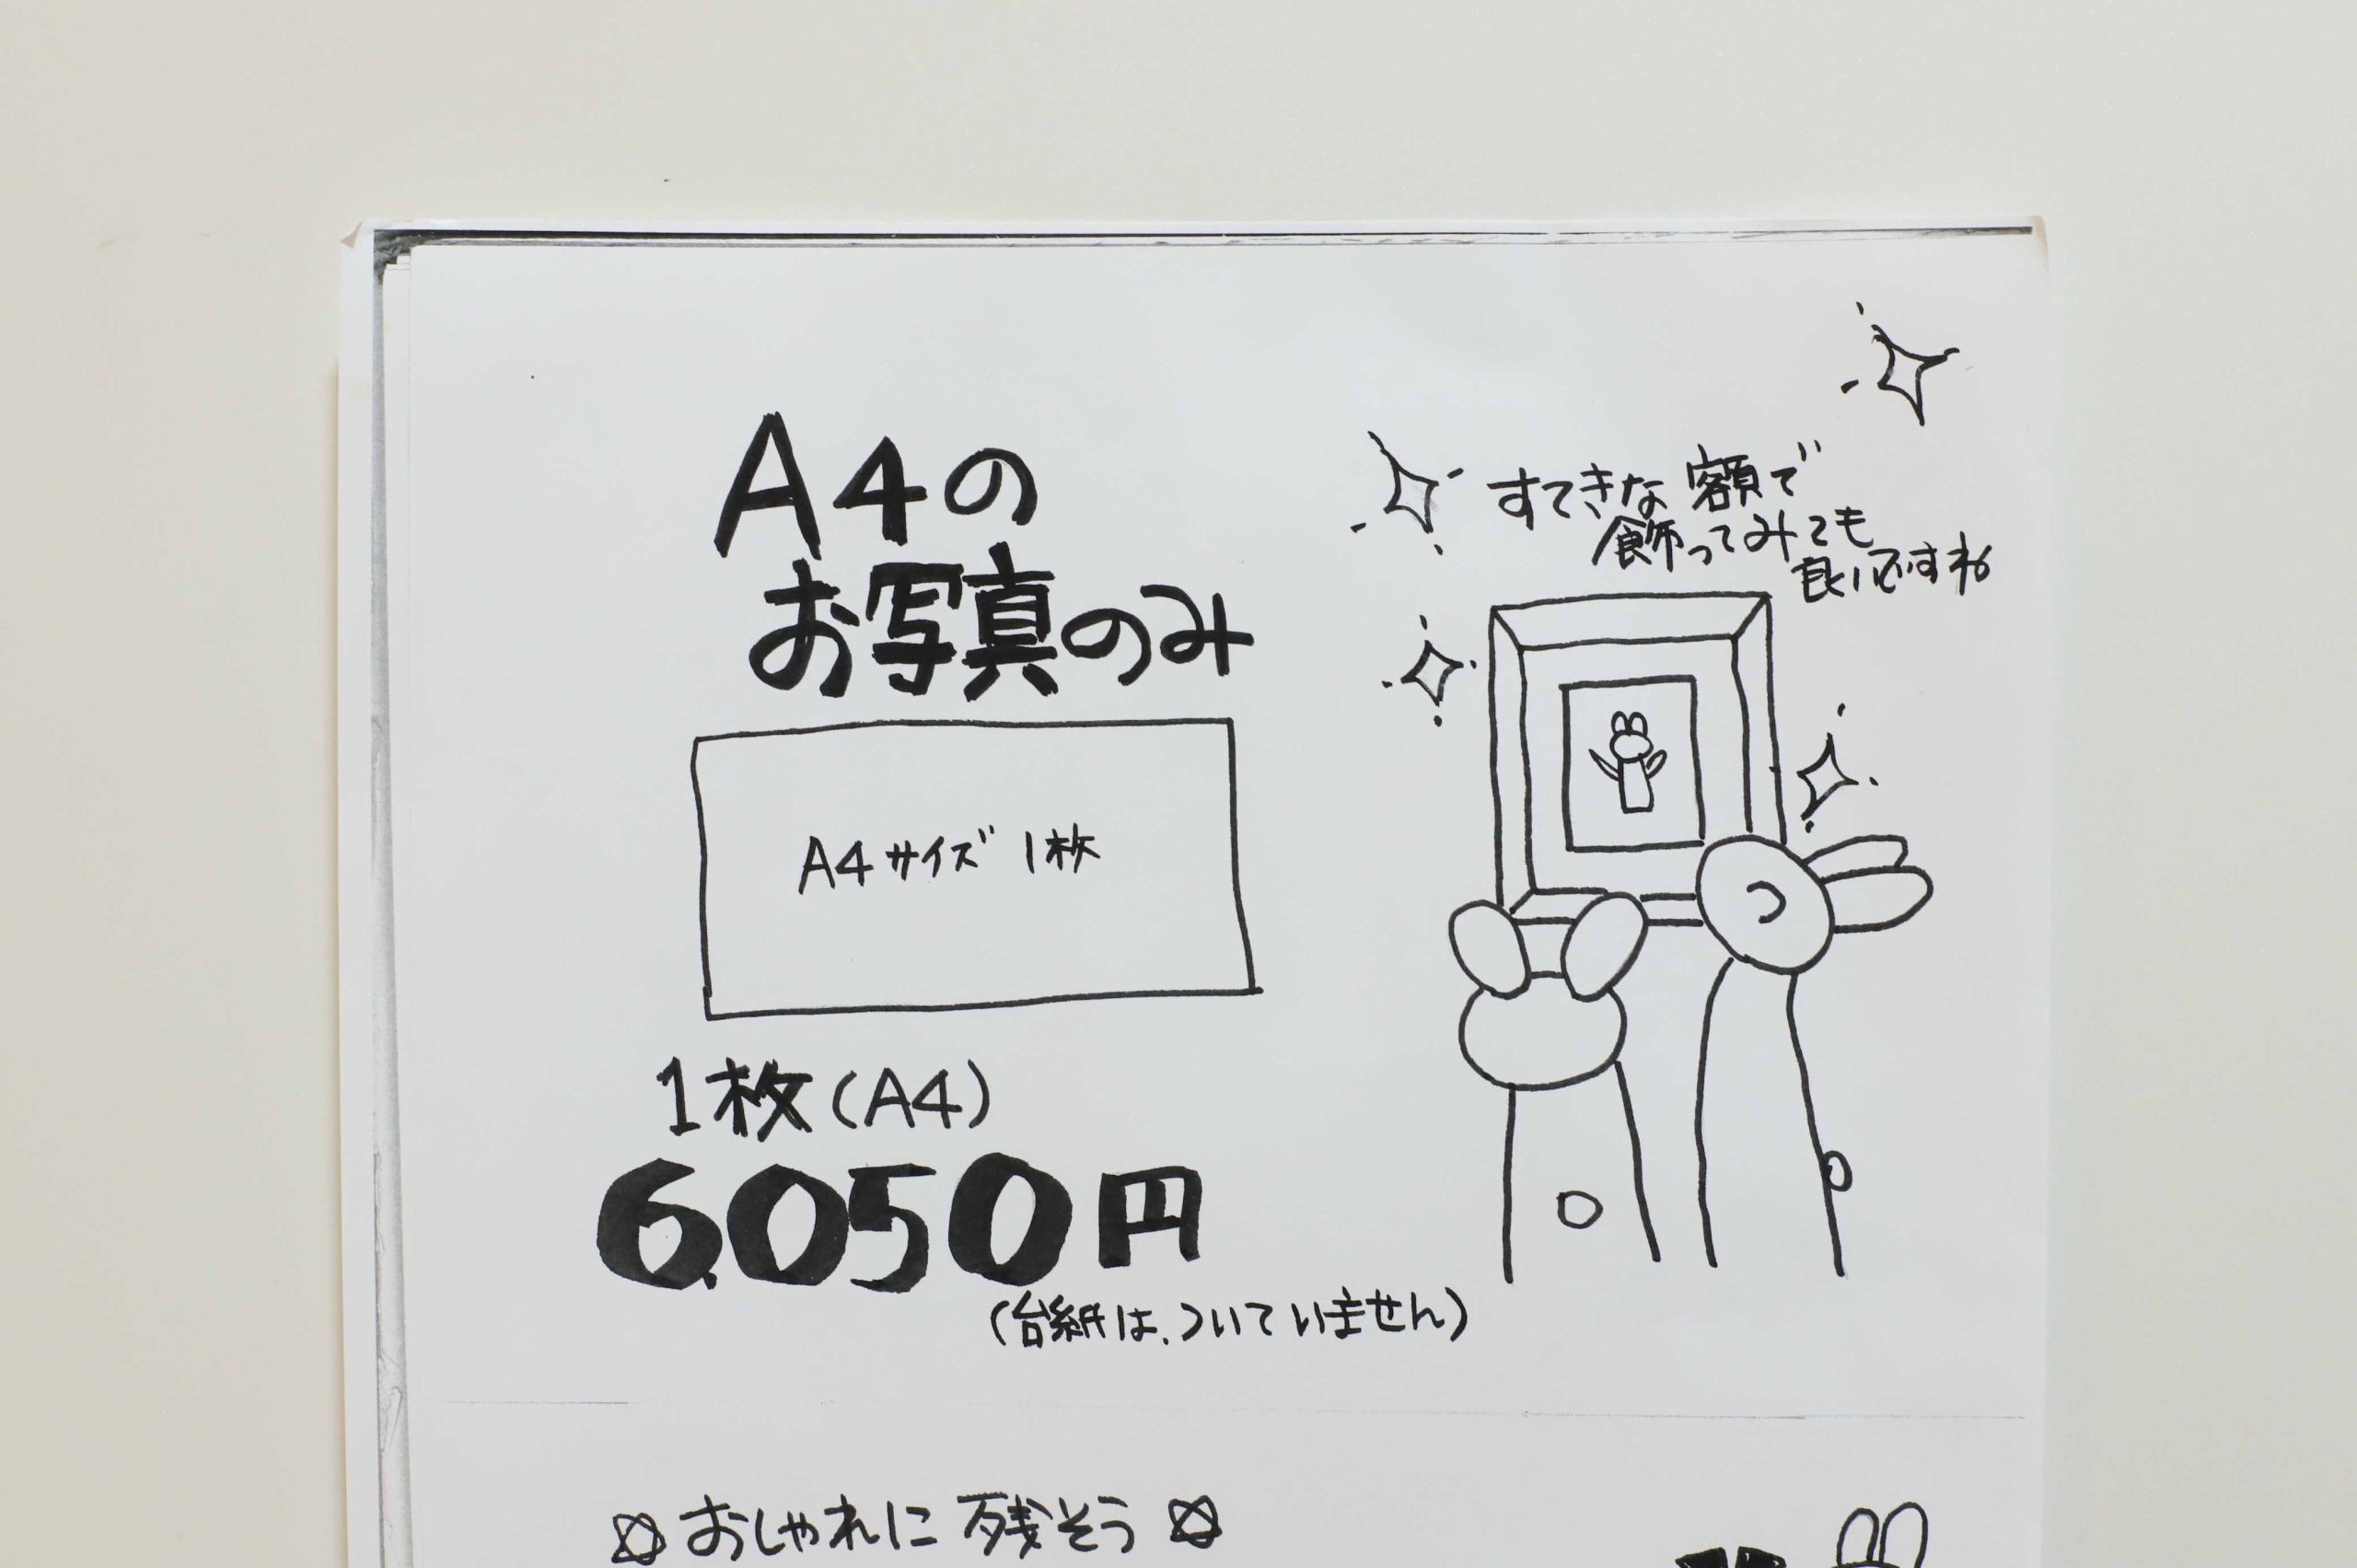 A4の
お写真のみ
A4サイズ 1枚
1枚(A4)
6,050円
(台紙は、ついていません)
すてきな 額で
飾ってみても
良いですね
おしゃれに 残そう